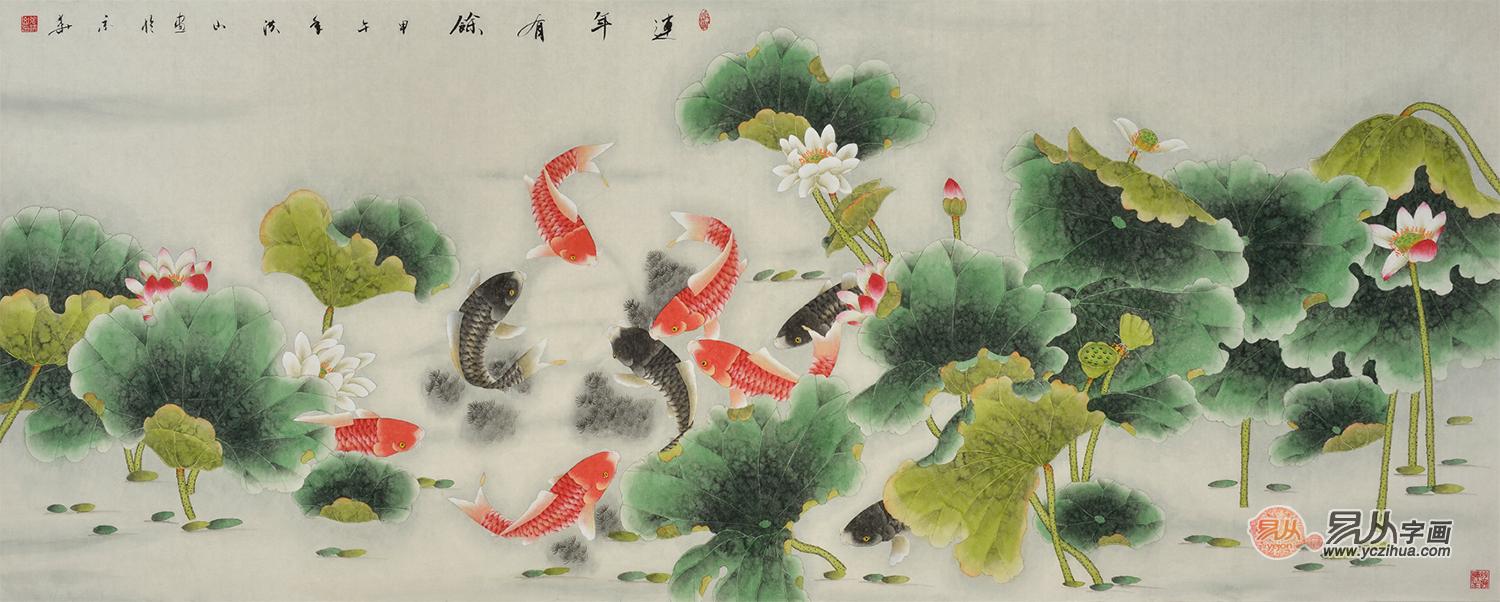 連年有餘 甲午年洪山画於京華
易从字画
www.yczihua.com
易从
yycong